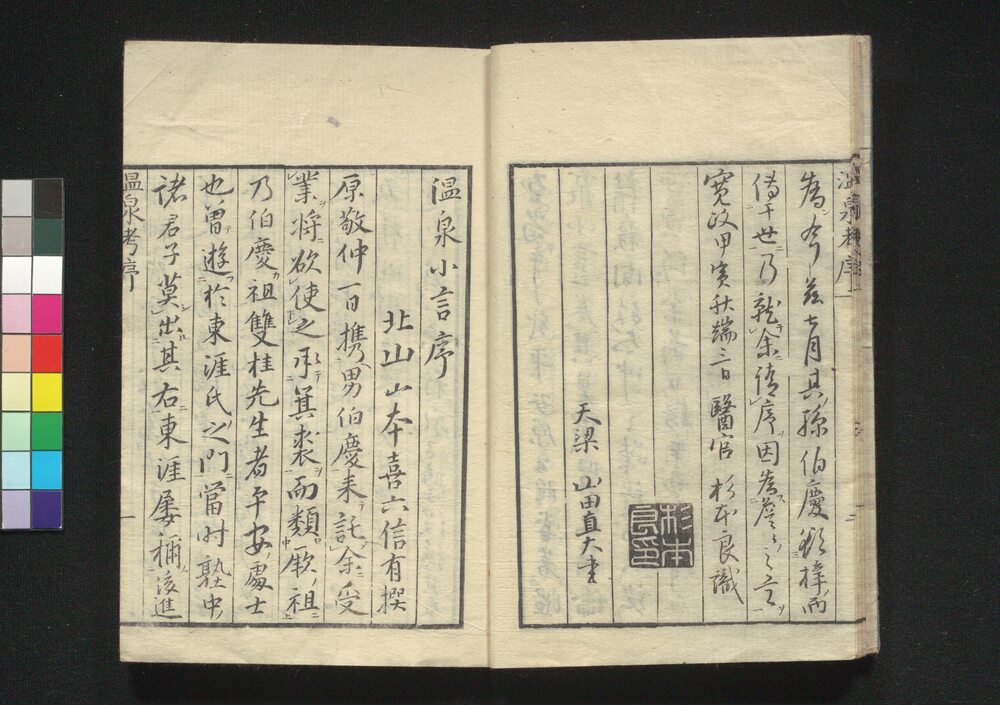 温泉考序
為今茲七月其孫伯慶欲梓而
傳于世乃就余倩序因為詹々之言
寛政甲寅秋端三日醫官杉本良識
杉本良印
天梁山田直大書
温泉小言序
北山山本喜六信有撰
原敬仲一日携男伯慶来託余受
業将欲使之承箕裘而類厥祖
乃伯慶祖雙桂先生者平安處士
也曽遊於東涯氏之門當时塾中
諸君子莫出其右東涯屡稱後進
温泉考序